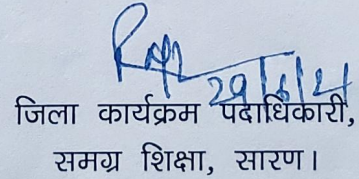 जिला कार्यक्रम पदाधिकारी,
समग्र शिक्षा, सारण।